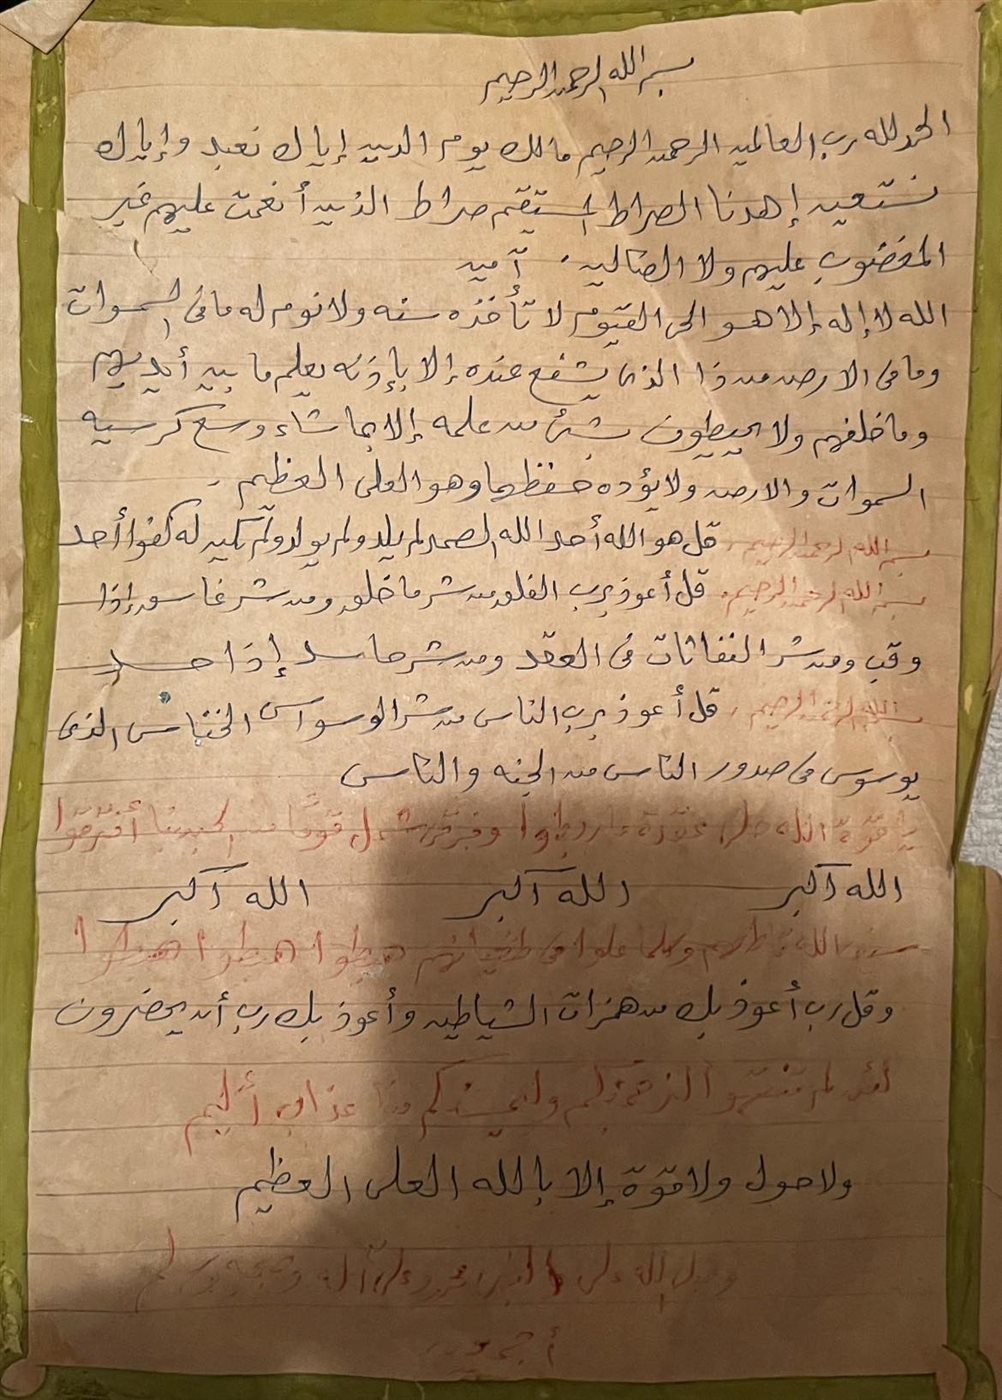 بسم الله الرحمن الرحيم
الحمد لله رب العالمين الرحمن الرحيم مالك يوم الدين إياك نعبد وإياك
نستعين إهدنا الصراط المستقيم صراط الذين أنعمت عليهم غير
المغضوب عليهم ولا الضالين. آمين
الله لا إله إلا هو الحى القيوم لا تأخذه سنه ولا نوم له مافى السموات
وما فى الارض من ذا الذى يشفع عنده إلا بإذنه يعلم ما بين أيديهم
وما خلفهم ولا يحيطون بشئ من علمه إلا بما شاء وسع كرسيه
السموات والارض ولا يؤده حفظهما وهو العلى العظيم.
بسم الله الرحمن الرحيم. قل هو الله أحد الله الصمد لم يلد ولم يولد ولم يكن له كفوا أحد
بسم الله الرحمن الرحيم. قل أعوذ برب الفلق من شر ما خلق ومن شر غاسق إذا
وقب ومن شر النفاثات فى العقد ومن شر حاسد إذا حسد
بسم الله الرحمن الرحيم. قل أعوذ برب الناس من شر الوسواس الخناس الذى
يوسوس فى صدور الناس من الجنه والناس
يا قوة الله حلى عقدة ما ربطوا وفرقى شمل قومًا
الله أكبر الله أكبر الله أكبر
الله وكلما علوا فى طغيانهم هبطوا هبطوا هبطوا
وقل رب أعوذ بك من همزات الشياطين وأعوذ بك رب أن يحضرون
لئن لم تنتهوا لنرجمنكم وليمسنكم منا عذاب أليم
ولا حول ولا قوة إلا بالله العلى العظيم
وصل الله على النبى محمد وعلى آله وصحبه وسلم